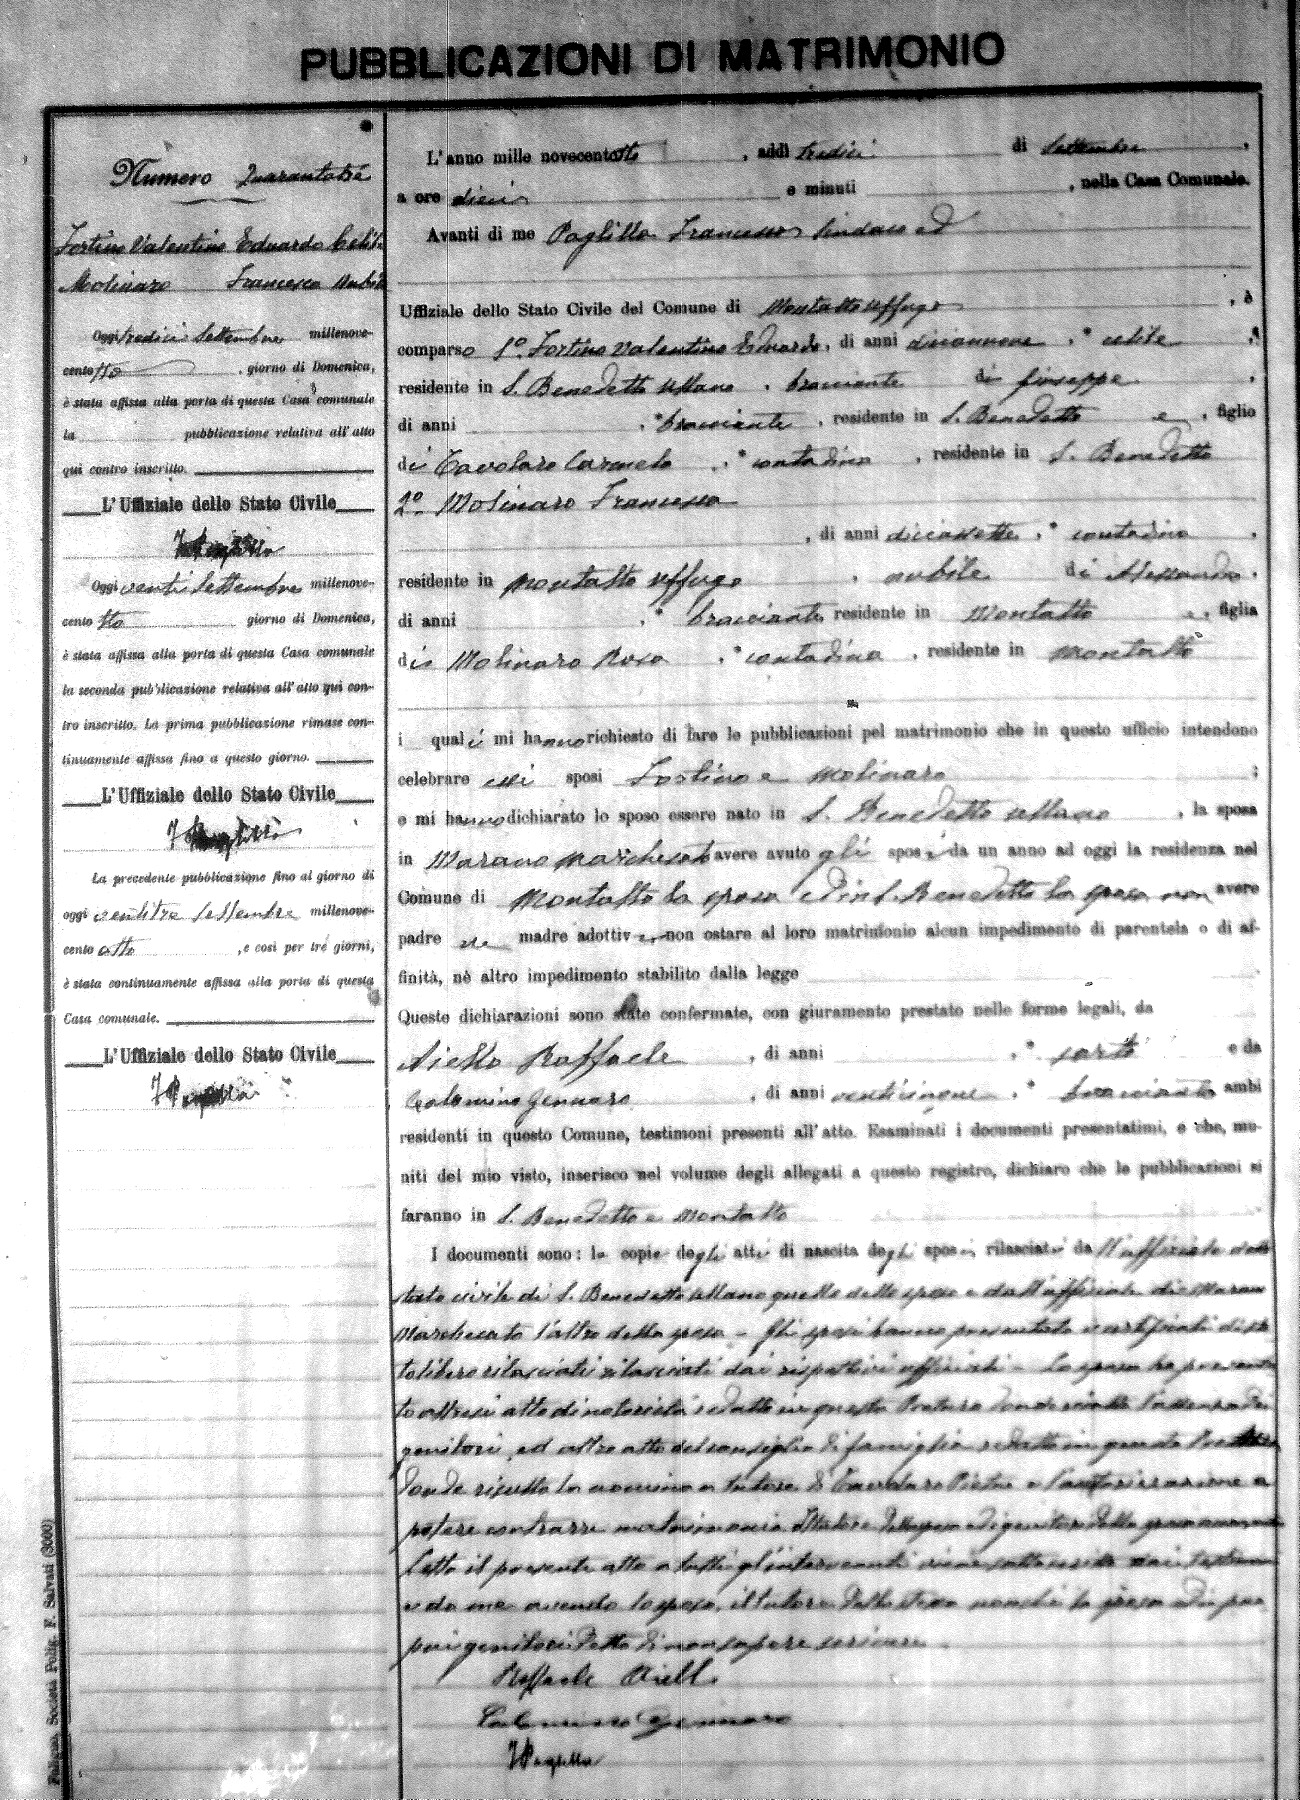 PUBBLICAZIONI DI MATRIMONIO
Numero Quarantatre
Fortino Valentino Eduardo Celibe
Molinaro Francesca Nubile
Oggi tredici Settembre millenove-
cento otto, giorno di Domenica,
è stata affissa alla porta di questa Casa comunale
la pubblicazione relativa all'atto
qui contro inscritto.
L'Uffiziale dello Stato Civile
Oggi venti Settembre millenove-
cento otto giorno di Domenica,
è stata affissa alla porta di questa Casa comunale
la seconda pubblicazione relativa all'atto qui con-
tro inscritto. La prima pubblicazione rimase con-
tinuamente affissa fino a questo giorno.
L'Uffiziale dello Stato Civile
La precedente pubblicazione fino al giorno di
oggi ventitre Settembre millenove-
cento otto, e così per tre giorni,
è stata continuamente affissa alla porta di questa
Casa comunale.
L'Uffiziale dello Stato Civile
Foligno, Società Polig. F. Salvati (3000)
L'anno mille novecentotto, addì tredici di Settembre,
a ore dieci e minuti, nella Casa Comunale.
Avanti di me Paglilla Francesco Sindaco ed
Uffiziale dello Stato Civile del Comune di Montalto Uffugo, è
comparso 1º. Fortino Valentino Eduardo, di anni diciannove, celibe
residente in S. Benedetto Ullano, bracciante di Giuseppe
di anni, bracciante, residente in S. Benedetto e, figlio
di Tavolaro Carmela, contadina, residente in S. Benedetto
2º. Molinaro Francesca
, di anni diciassette, contadina.
residente in Montalto Uffugo, nubile di Alessandro.
di anni, bracciante residente in Montalto e, figlia
di Molinaro Rosa, contadina, residente in Montalto
i quali mi hanno richiesto di fare le pubblicazioni pel matrimonio che in questo ufficio intendono
celebrare essi sposi Fortino e Molinaro;
e mi hanno dichiarato lo sposo essere nato in S. Benedetto Ullano, la sposa
in Marano Marchesato avere avuto gli sposi da un anno ad oggi la residenza nel
Comune di Montalto la sposa ed in S. Benedetto lo sposo non avere
padre nè madre adottivi e non ostare al loro matrimonio alcun impedimento di parentela o di af-
finità, nè altro impedimento stabilito dalla legge
Queste dichiarazioni sono state confermate, con giuramento prestato nelle forme legali, da
Aiello Raffaele, di anni, sarto e da
Calomino Gennaro, di anni venticinque, bracciante ambi
residenti in questo Comune, testimoni presenti all'atto. Esaminati i documenti presentatimi, e che, mu-
niti del mio visto, inserisco nel volume degli allegati a questo registro, dichiaro che le pubblicazioni si
faranno in S. Benedetto e Montalto
I documenti sono: le copie degli atti di nascita degli sposi, rilasciati da ll'uffiziale dello
stato civile di S. Benedetto Ullano quello dello sposo e dall'uffiziale di Marano
Marchesato l'altro della sposa - Gli sposi hanno presentato i certificati di sta
to libero rilasciati rilasciati dai rispettivi uffiziali - Lo sposo ha presenta
to altresì atto di notorietà redatto in questa Pretura donde risulta l'assenza dei
genitori, ed altro atto del consiglio di famiglia redatto in questa Pretura
donde risulta la nomina a tutore di Tavolaro Pietro e l'autorizzazione a
potere contrarre matrimonio. Il tutore dello sposo ed i genitori della sposa
Letto il presente atto a tutti gl'intervenuti viene sottoscritto dai testimoni
e da me avendo lo sposo, il tutore dello stesso nonchè la sposa ed i
genitori detto di non sapere scrivere
Raffaele Aiello
Calomino Gennaro
F Paglilla